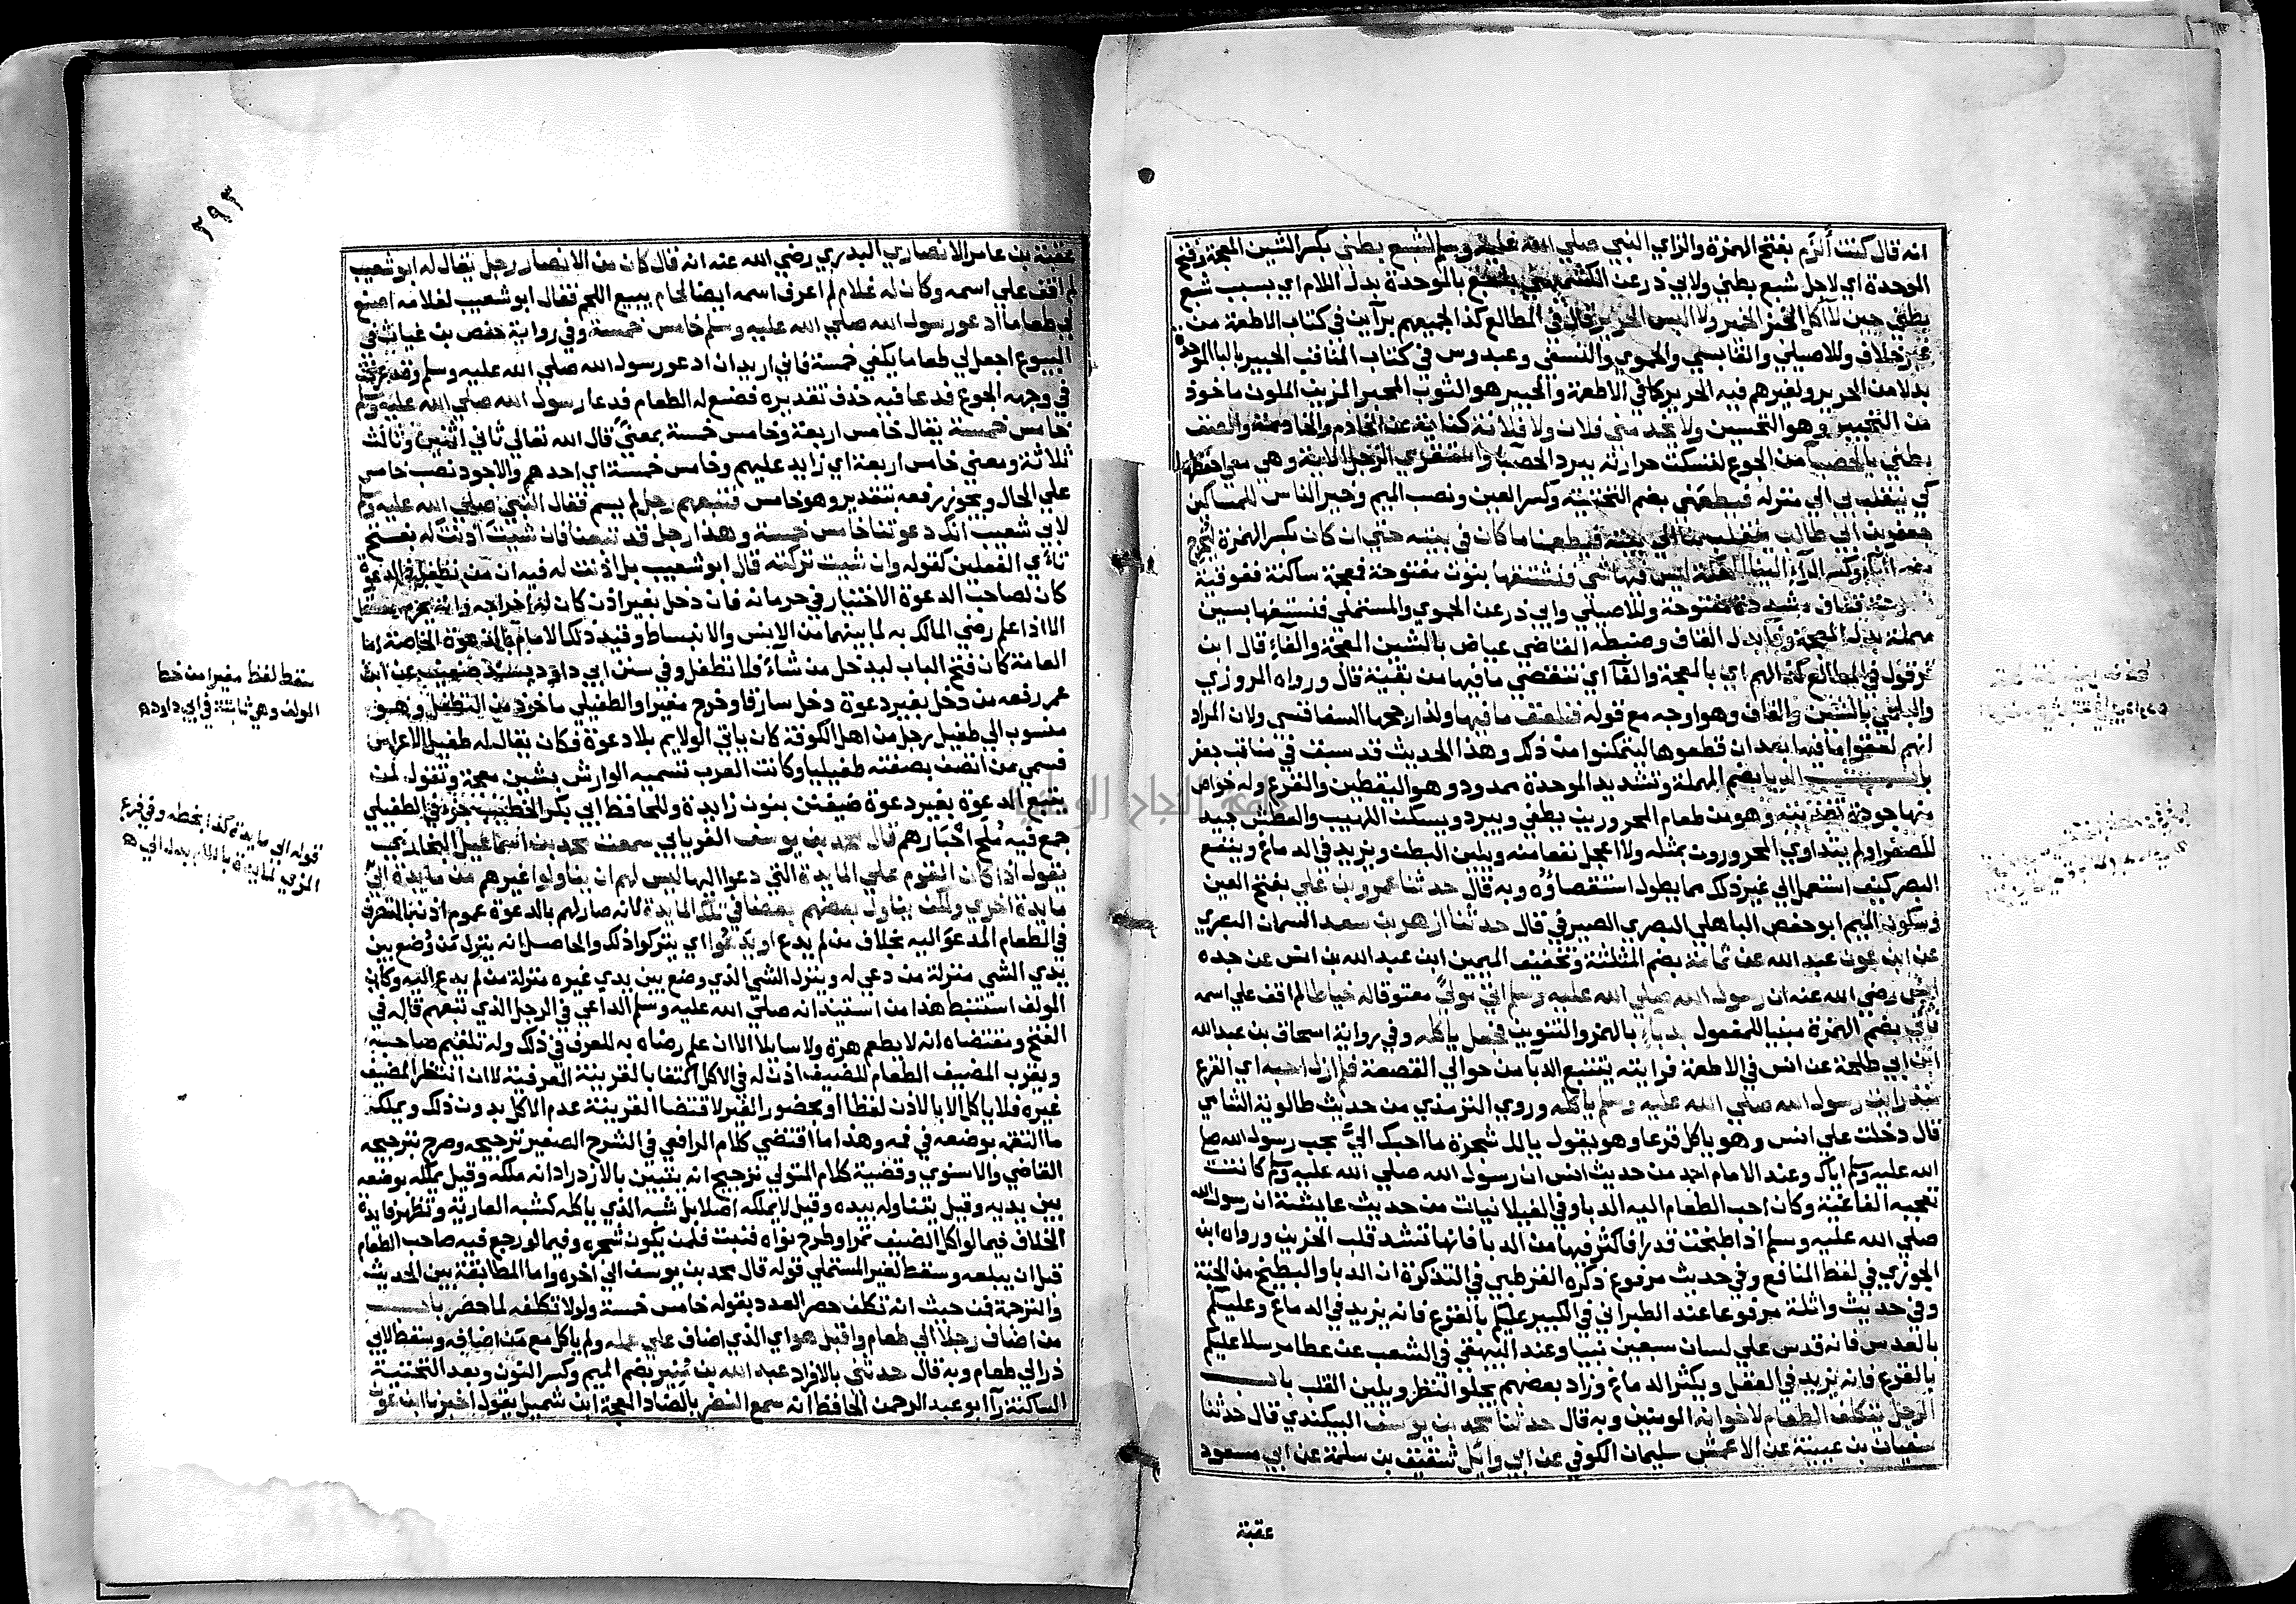 انه قال كنت ألزم بفتح الهمزة والزاي النبي صلي الله عليه وسلم لشبع بطني بكسر الشين المعجمة وفتح
الموحدة اي لاجل شبع بطني ولابي ذر عن الكشميهني بشبع بالموحدة بدل اللام اي بسبب شبع
بطني حين لا آكل الخمير ولا البس الحرير قال في المطالع كذا لجميعهم برآين في كتاب الاطعمة من
غير خلاف وللاصيلي والقابسي والحموي والنسفي وعبدوس في كتاب المناقب الحبير بالبا الموحدة
بدلا من الحرير ولغيرهم فيه الحرير كما في الاطعمة والحبير هو الثوب المحبر المزين الملون ماخوذ
من التحبير وهو التحسين ولا يخدمني فلان ولا فلانة كناية عن الخادم والخادمة والصق
بطني بالحصبا من الجوع لتسكن حرارته ببرد الحصبا واستقري الرجل الاية وهي معي احفظها
كي ينقلب بي الي منزله فيطعمني بضم التحتية وكسر العين ونصب الميم وخير الناس للمساكين
جعفر بن ابي طالب ينقلب بنا الي بيته فيطعمنا ما كان في بيته حتي ان كان بكسر الهمزة ليخرج
بضم الياء وكسر الراء الينا العكة ليس فيها شي فنشتقها بنون مفتوحة فمعجمة ساكنة ففوقية
مفتوحة فقاف مشددة مفتوحة وللاصيلي وابي ذر عن الحموي والمستملي فنستفها بسين
مهملة بدل المعجمة وفا بدل القاف وضبطه القاضي عياض بالشين المعجمة والفاء قال ابن
قرقول في المطالع كذا لهم اي بالمعجمة والفآ اي نتقصي ما فيها من بقية قال ورواه المروزي
والبلخي بالشين والقاف وهو اوجه مع قوله فنلعق ما فيها ولذا رجحها السفاقسي ولان المراد
انهم لعقوا ما فيها بعد ان قطعوها ليتمكنوا من ذلك وهذا الحديث قد سبق في مناقب جعفر
باب الدبا بضم المهملة وتشديد الموحدة ممدود وهو اليقطين والقرع وله خواص
منها جودة تغذيته وهو من طعام المحرورين يطفي ويبرد ويسكن اللهيب والعطش جيد
للصفرا ولم يتداوي المحرورون بمثله ولا اعجل نفعا منه ويلين البطن ويزيد في الدماغ وينفع
البصر كيف استعمل الي غير ذلك مما يطول استقصاؤه وبه قال حدثنا عمرو بن علي بفتح العين
وسكون الميم ابو حفص الباهلي البصري الصيرفي قال حدثنا ازهر بن سعد السمان البصري
عن ابن عون عبد الله عن ثمامة بضم المثلثة وتخفيف الميمين ابن عبد الله بن انس عن جده
انس رضي الله عنه ان رسول الله صلي الله عليه وسلم اتي مولي معتوقا له خياطا لم اقف علي اسمه
فاتي بضم الهمزة مبنيا للمفعول بدباء بالهمز والتنوين فجعل ياكله وفي رواية اسحاق بن عبد الله
ابن ابي طلحة عن انس في الاطعمة فرايته يتتبع الدبا من حوالي القصعة فلم ازل احبه اي القرع
منذ رايت رسول الله صلي الله عليه وسلم ياكله وروي الترمذي من حديث طالوت الشامي
قال دخلت علي انس وهو ياكل قرعا وهو يقول يا لك شجرة ما احبك اليّ بحب رسول الله صلي
الله عليه وسلم اياك وعند الامام احمد من حديث انس ان رسول الله صلي الله عليه وسلم كانت
تعجبه الفاغية وكان احب الطعام اليه الدبا وفي الغيلانيات من حديث عايشة ان رسول الله
صلي الله عليه وسلم اذا طبخت قدرا فاكثر فيها من الدبا فانها تشد قلب الحزين ورواه ابن
الجوزي في لفظ المنافع وفي حديث مرفوع ذكره القرطبي في التذكرة ان الدبا والبطيخ من الجنة
وفي حديث واثلة مرفوعا عند الطبراني في الكبير عليكم بالقرع فانه يزيد في الدماغ وعليكم
بالعدس فانه قدس علي لسان سبعين نبيا وعند البيهقي في الشعب عن عطا مرسلا عليكم
بالقرع فانه يزيد في العقل ويكثر الدماغ وزاد بعضهم يجلو النظر ويلين القلب باب
الرجل يتكلف الطعام لاخوانه المومنين وبه قال حدثنا محمد بن يوسف البيكندي قال حدثنا
سفيان بن عيينة عن الاعمش سليمان الكوفي عن ابي وائل شقيق بن سلمة عن ابي مسعود
عقبة
٢٩٣
عقبة بن عامر الانصاري البدري رضي الله عنه انه قال كان من الانصار رجل يقال له ابو شعيب
لم اقف علي اسمه وكان له غلام لم اعرف اسمه ايضا لحام يبيع اللحم فقال ابو شعيب لغلامه اصنع
لي طعاما ادعو رسول الله صلي الله عليه وسلم خامس خمسة وفي رواية حفص بن غياث في
البيوع اجعل لي طعاما يكفي خمسة فاني اريد ان ادعو رسول الله صلي الله عليه وسلم وقد عرفت
في وجهه الجوع فدعا فيه حذف تقديره فصنع له الطعام فدعا رسول الله صلي الله عليه وسلم
خامس خمسة يقال خامس اربعة وخامس خمسة بمعنيً قال الله تعالي ثاني اثنين وثالث
ثلاثة ومعني خامس اربعة اي زايد عليهم وخامس خمسة اي احدهم والاجود نصب خامس
علي الحال ويجوز رفعه بتقدير وهو خامس فتبعهم رجل لم يسم فقال النبي صلي الله عليه وسلم
لابي شعيب انك دعوتنا خامس خمسة وهذا رجل قد تبعنا فان شيت اذنت له بفتح
تاءي الفعلين كقوله وان شيت تركته قال ابو شعيب بل اذنت له فيه ان من تطفل في الدعوة
كان لصاحب الدعوة الاختيار في حرمانه فان دخل بغير اذن كان له اخراجه وانه يحرم التطفل
الا اذا علم رضي المالك به لما بينهما من الانس والانبساط وقيد ذلك الامام بالدعوة الخاصة اما
العامة كان فتح الباب ليدخل من شاء فلا تطفل وفي سنن ابي داود بسند ضعيف عن ابن
عمر رفعه من دخل بغير دعوة دخل سارقا وخرج مغيرا والطفيلي ماخوذ من التطفل وهو
منسوب الي طفيل رجل من اهل الكوفة كان ياتي الولايم بلا دعوة فكان يقال له طفيل الاعراس
فسمي من اتصف بصفته طفيليا وكانت العرب تسميه الوارش بشين معجمة وتقول لمن
يتبع الدعوة بغير دعوة ضيفن بنون زايدة وللحافظ ابي بكر الخطيب جزء في الطفيلي
جمع فيه مُلح اخبارهم قال محمد بن يوسف الفريابي سمعت محمد بن اسماعيل البخاري
يقول اذا كان القوم علي المايدة التي دعوا اليها ليس لهم ان يناولوا غيرهم من مايدة الي
مايدة اخري ولكن يناول بعضهم بعضا في تلك المايدة لانه صار لهم بالدعوة عموم اذن بالتصرف
في الطعام المدعو اليه بخلاف من لم يدع او يَدَعُوا اي يتركوا ذلك والحاصل انه ينزل من وُضع بين
يدي الشي منزلة من دعي له وينزل الشي الذي وضع بين يدي غيره منزلة من لم يدع اليه وكان
المولف استنبط هذا من استيذانه صلي الله عليه وسلم الداعي في الرجل الذي تبعهم قاله في
الفتح ومقتضاه انه لا يطعم هرة ولا سايلا الا ان علم رضاه به للعرف في ذلك وله تلقيم صاحبه
وبقرب المضيف الطعام للضيف اذن له في الاكل اكتفا بالقرينة العرفية لا ان انتظر المضيف
غيره فلا ياكل الا بالاذن لفظا او بحضور الغير لاقتضا القرينة عدم الاكل بدون ذلك ويملك
ما التقمه بوضعه في فمه وهذا ما اقتضي كلام الرافعي في الشرح الصغير ترجيحه وصرح بترجيحه
القاضي والاسنوي وقضية كلام المتولي ترجيح انه يتبين بالازدراد انه ملكه وقيل يملكه بوضعه
بين يديه وقيل بتناوله بيده وقيل لا يملكه اصلا بل شبه الذي ياكله كشبه العارية وتظهر فايدة
الخلاف فيما لو اكل الضيف تمرا وطرح نواه فنبت فلمن يكون شجره وفيما لو رجع فيه صاحب الطعام
قبل ان يبلعه وسقط لغير المستملي قوله قال محمد بن يوسف الي اخره واما المطابقة بين الحديث
والترجمة فمن حيث انه تكلف حصر العدد بقوله خامس خمسة ولولا تكلفه لما حصر باب
من اضاف رجلا الي طعام واقبل هو اي الذي اضاف علي عمله ولم ياكل مع من اضافه وسقط لابي
ذر الي طعام وبه قال حدثني بالافراد عبد الله بن منير بضم الميم وكسر النون وبعد التحتية
الساكنة رآ ابو عبد الرحمن الحافظ انه سمع النضر بالضاد المعجمة ابن شميل يقول اخبرنا ابن عون
سقط لفظ مغيرا من خط
المولف وهي ثابتة في ابي داود ه
قوله الي مايدة كذا بخطه وفي فرع
المزي لمايدة باللام بدل الي ه